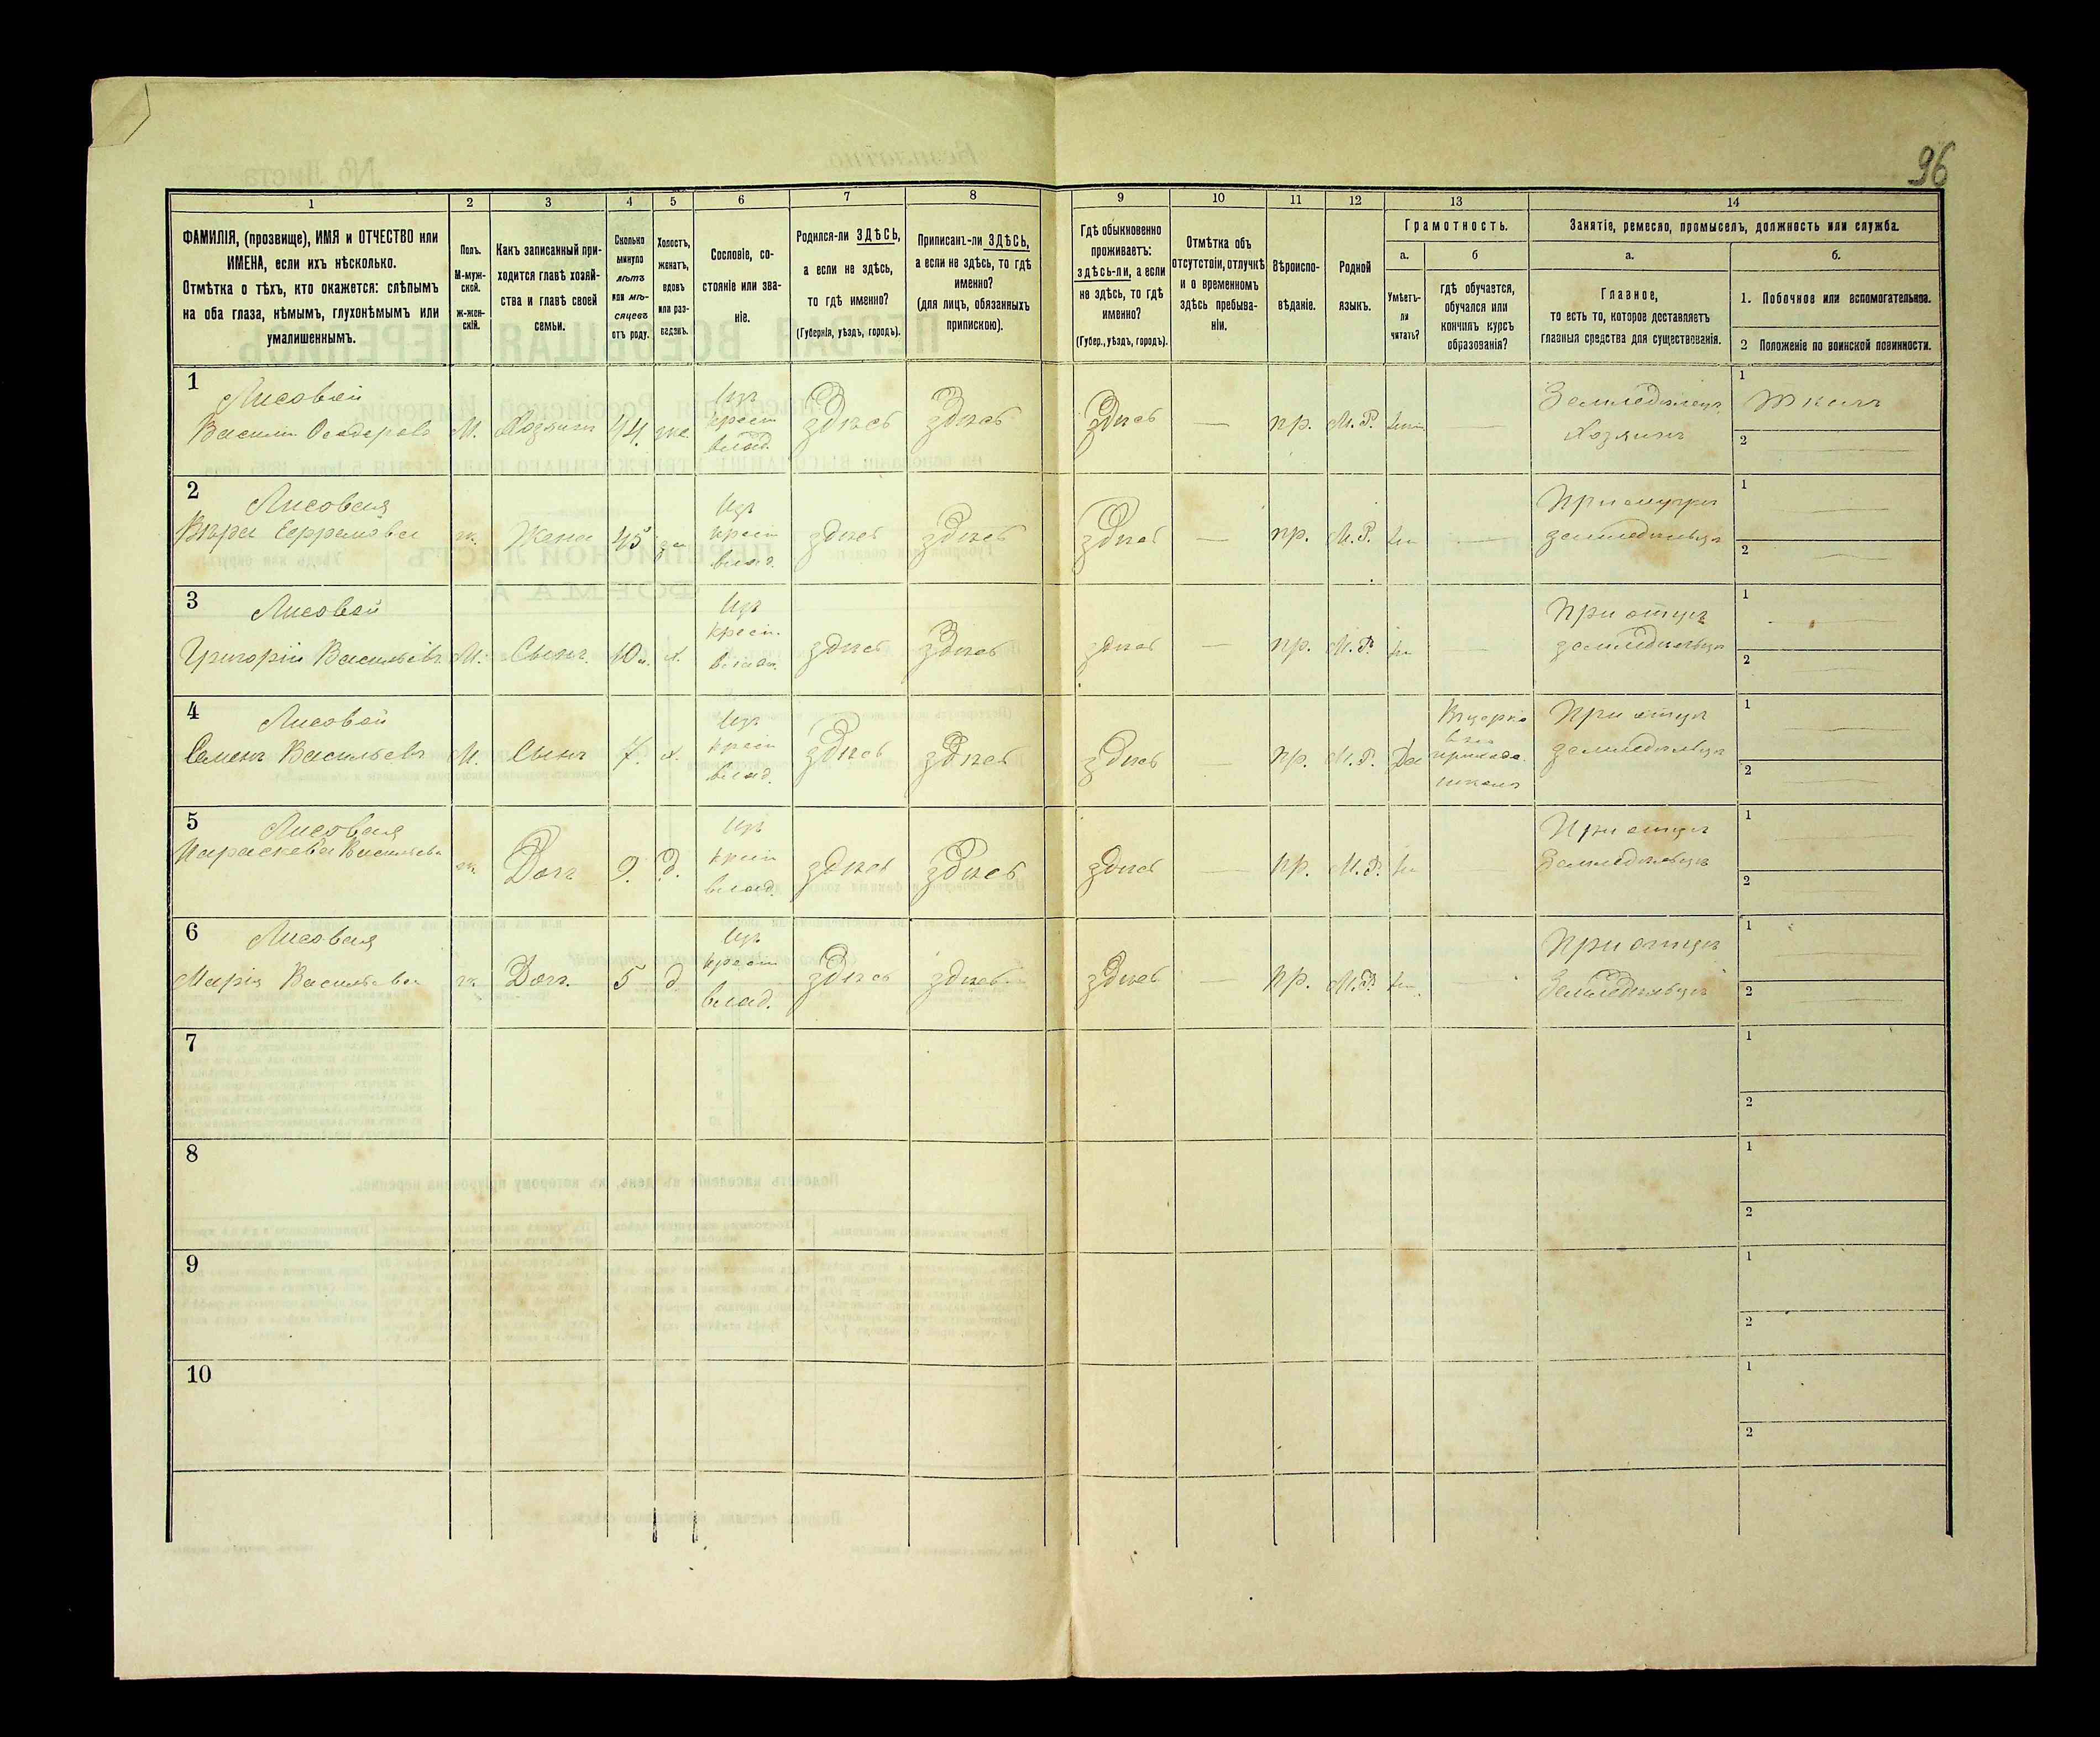 96
1
2
3
4
5
6
7
8
9
10
11
12
13
14
ФАМИЛІЯ, (прозвище), ИМЯ и ОТЧЕСТВО или
ИМЕНА, если ихъ нѣсколько.
Отмѣтка о тѣхъ, кто окажется: слѣпымъ
на оба глаза, нѣмымъ, глухонѣмымъ или
умалишеннымъ.
Полъ.
М-муж-
ской.
Ж-жен-
скій.
Какъ записанный при-
ходится главѣ хозяй-
ства и главѣ своей
семьи.
Сколько
минуло
лѣтъ
или мѣ-
сяцевъ
отъ роду.
Холостъ,
женатъ,
вдовъ
или раз-
веденъ.
Сословіе, со-
стояніе или зва-
ніе.
Родился-ли ЗДѢСЬ,
а если не здѣсь,
то гдѣ именно?
(Губернія, уѣздъ, городъ).
Приписанъ-ли ЗДѢСЬ,
а если не здѣсь, то гдѣ
именно?
(для лицъ, обязанныхъ
припискою).
Гдѣ обыкновенно
проживаетъ:
здѣсь-ли, а если
не здѣсь, то гдѣ
именно?
(Губер., уѣздъ, городъ).
Отмѣтка объ
отсутствіи, отлучкѣ
и о временномъ
здѣсь пребыва-
ніи.
Вѣроиспо-
вѣданіе.
Родной
языкъ.
Грамотность.
а.
Умѣетъ-
ли
читать?
б
гдѣ обучается,
обучался или
кончилъ курсъ
образованія?
Занятіе, ремесло, промыселъ, должность или служба.
а.
Главное,
то есть то, которое доставляетъ
главныя средства для существованія.
б.
1. Побочное или вспомогательное.
2 Положеніе по воинской повинности.
1
Лисовой
Василій
М.
Хозяинъ
44
Изъ
крест
влад.
здѣсь
Здѣсь
Здѣсь
—
пр.
М. Р.
—
Земледѣлецъ
Хозяинъ
1
Ткачъ
2
2
Лисовая
Вѣра
ж.
Жена
45
Изъ
крест
влад.
здѣсь
здѣсь
здѣсь
—
пр.
М. Р.
—
При мужѣ
земледѣльцѣ
1
2
3
Лисовой
Григорій Васильевъ
М.
Сынъ
10
х.
Изъ
крест.
влад.
здѣсь
Здѣсь
здѣсь
—
пр.
М. Р.
—
При отцѣ
земледѣльцѣ
1
2
4
Лисовой
Семенъ Васильевъ
М.
Сынъ
7.
х.
Изъ
крест
влад.
здѣсь
здѣсь
здѣсь
—
пр.
М. Р.
Да
школѣ
При отцѣ
земледѣльцѣ
1
2
5
Лисовая
Параскева Васильева
ж.
Дочь
9.
д.
Изъ
крест
влад.
здѣсь
здѣсь
здѣсь
—
пр.
М. Р.
—
При отцѣ
Земледѣльцѣ
1
2
6
Лисовая
Марія Васильева
ж.
Дочь
5
д
Изъ
крест
влад.
здѣсь
здѣсь
здѣсь
—
пр.
М. Р.
—
При отцѣ
Земледѣльцѣ
1
2
7
1
2
8
1
2
9
1
2
10
1
2